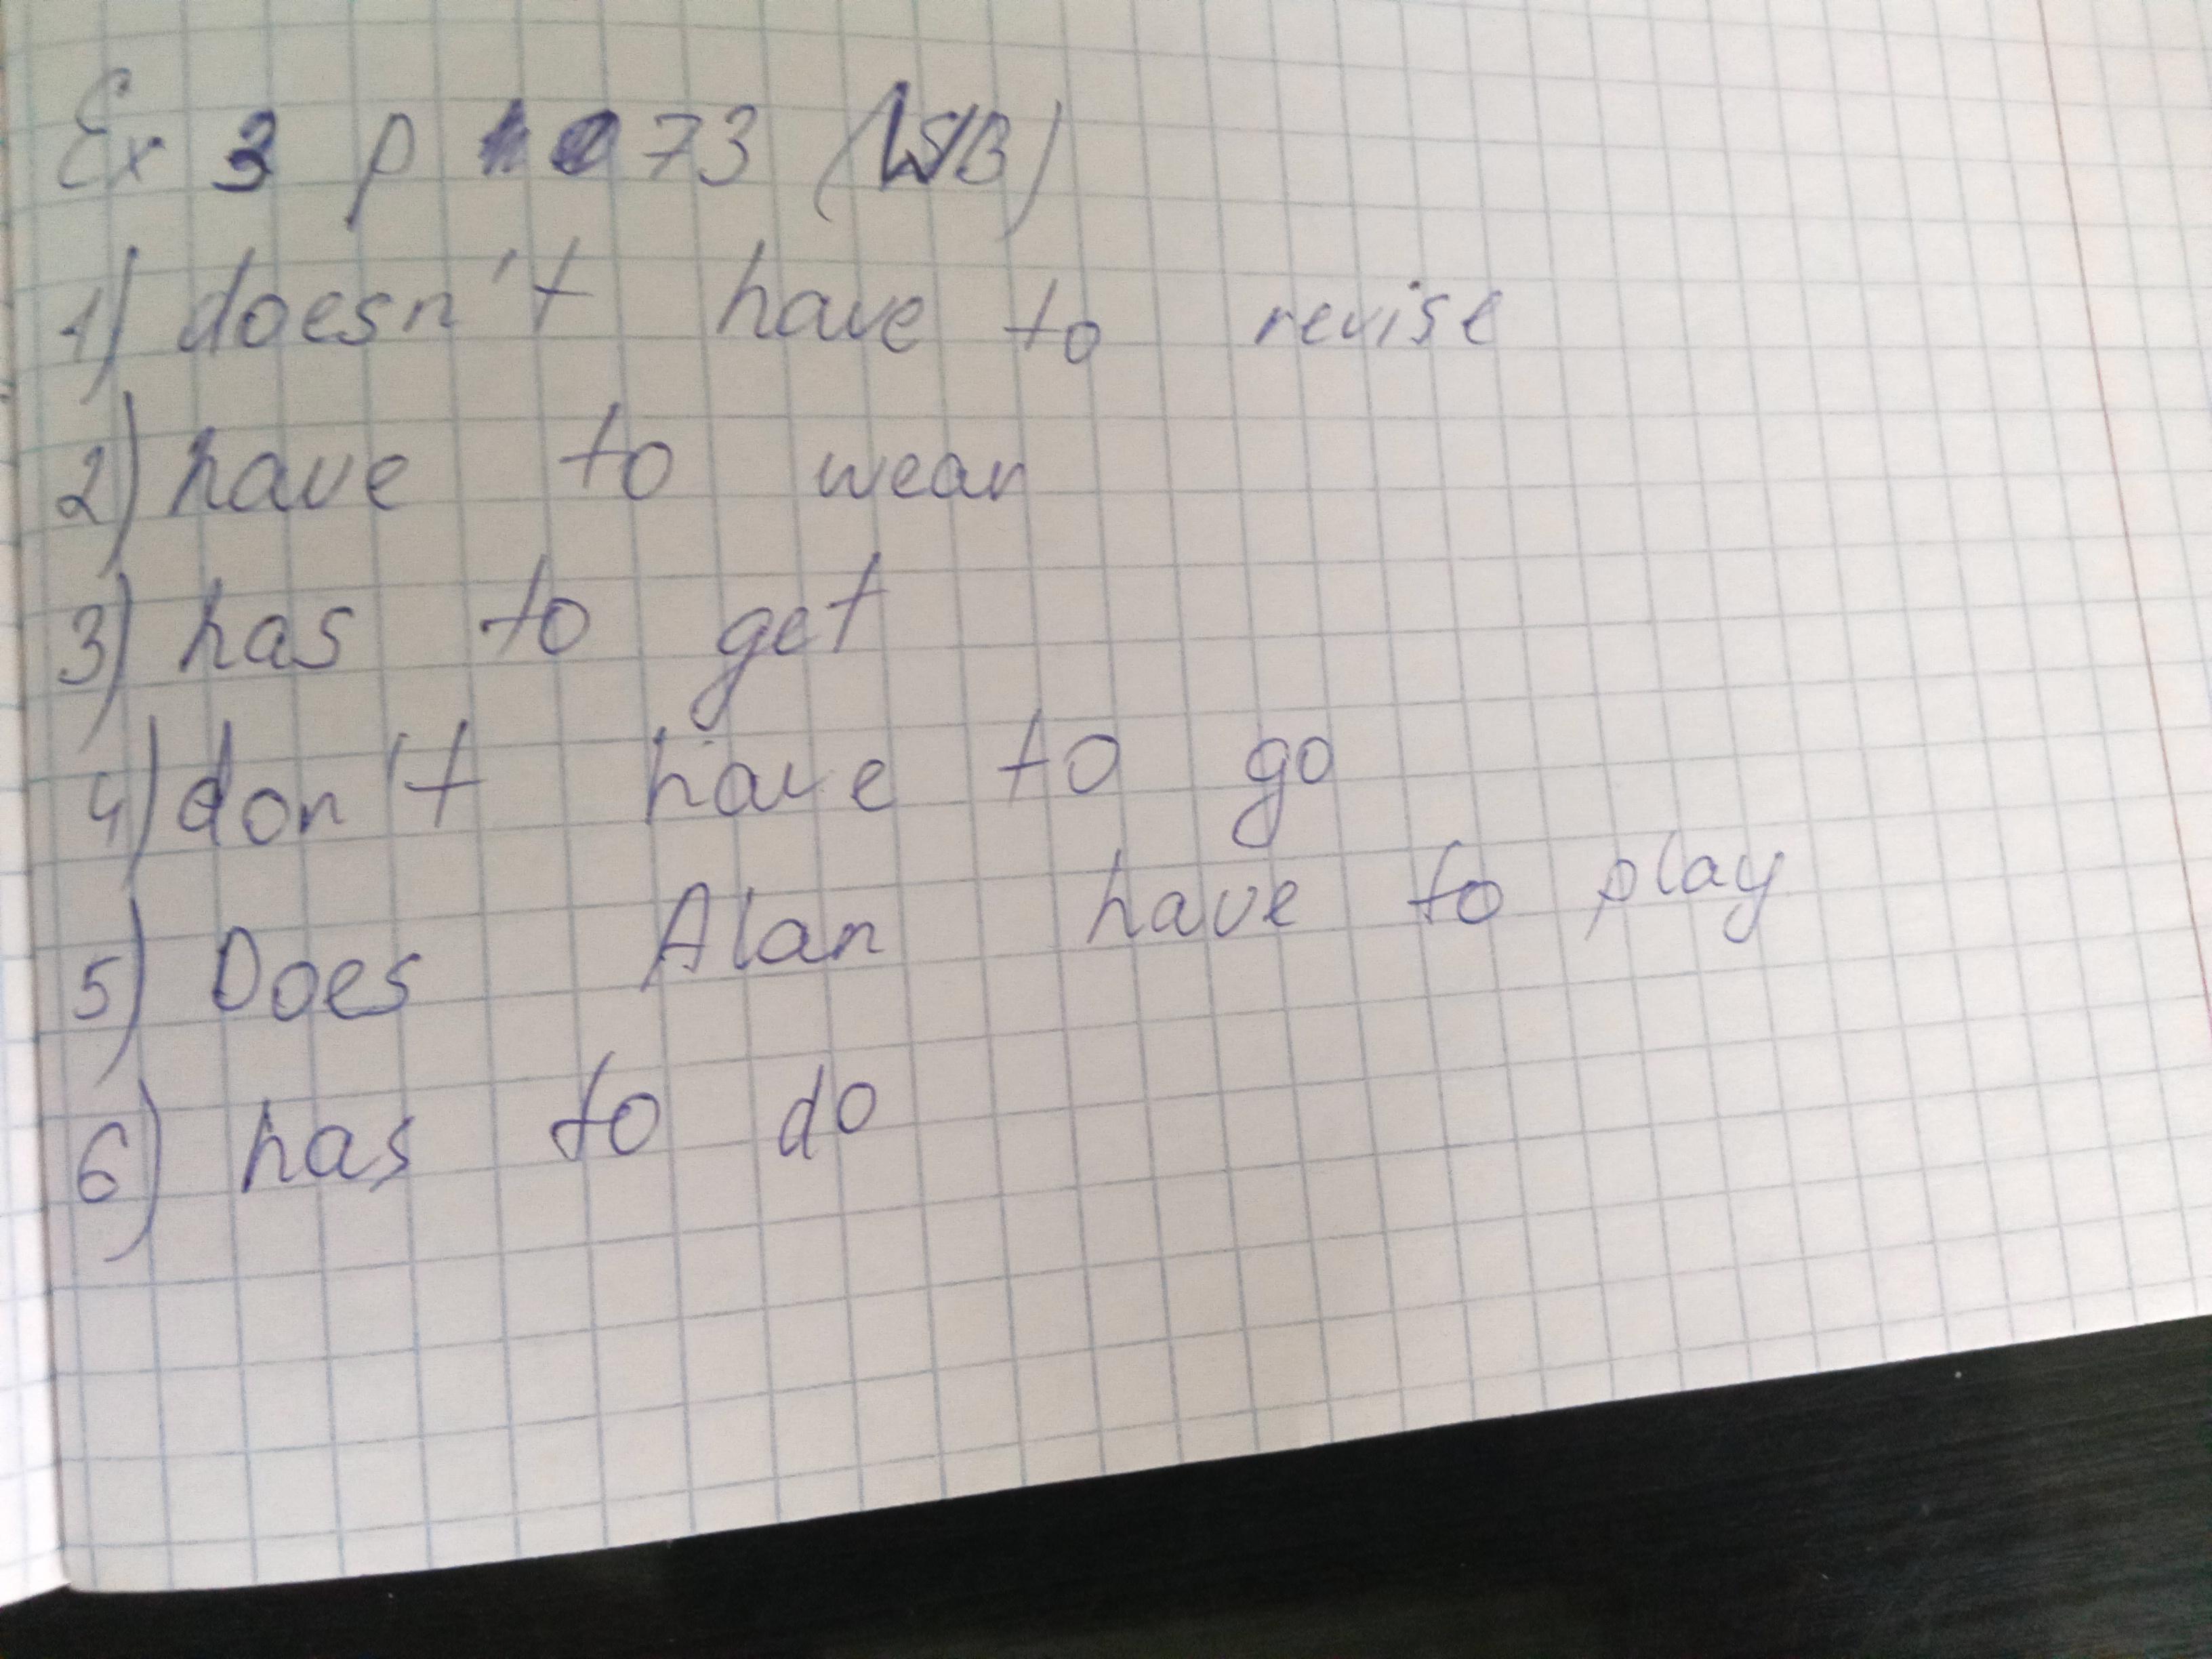 Ex 3 p 73 (WB)
1) doesn't have to revise
2) have to wear
3) has to get
4) don't have to go
5) Does Alan have to play
6) has to do